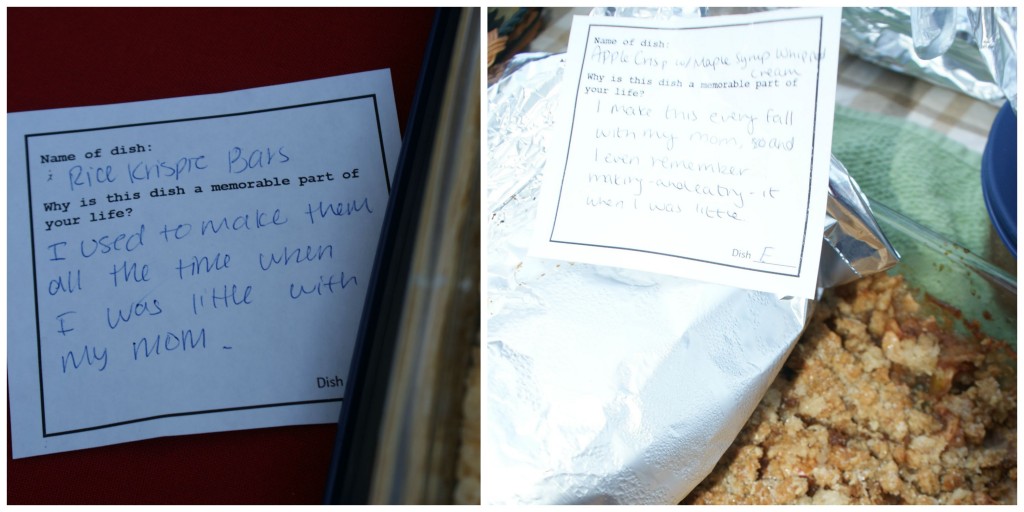 Name of dish:
Rice Krispie Bars
Why is this dish a memorable part of
your life?
I used to make them
all the time when
I was little with
my mom.
Dish
Name of dish:
Apple Crisp w/ Maple Syrup Whipped
cream
Why is this dish a memorable part of
your life?
I make this every fall
with my mom, and
I even remember
making - and eating - it
when I was little
Dish E